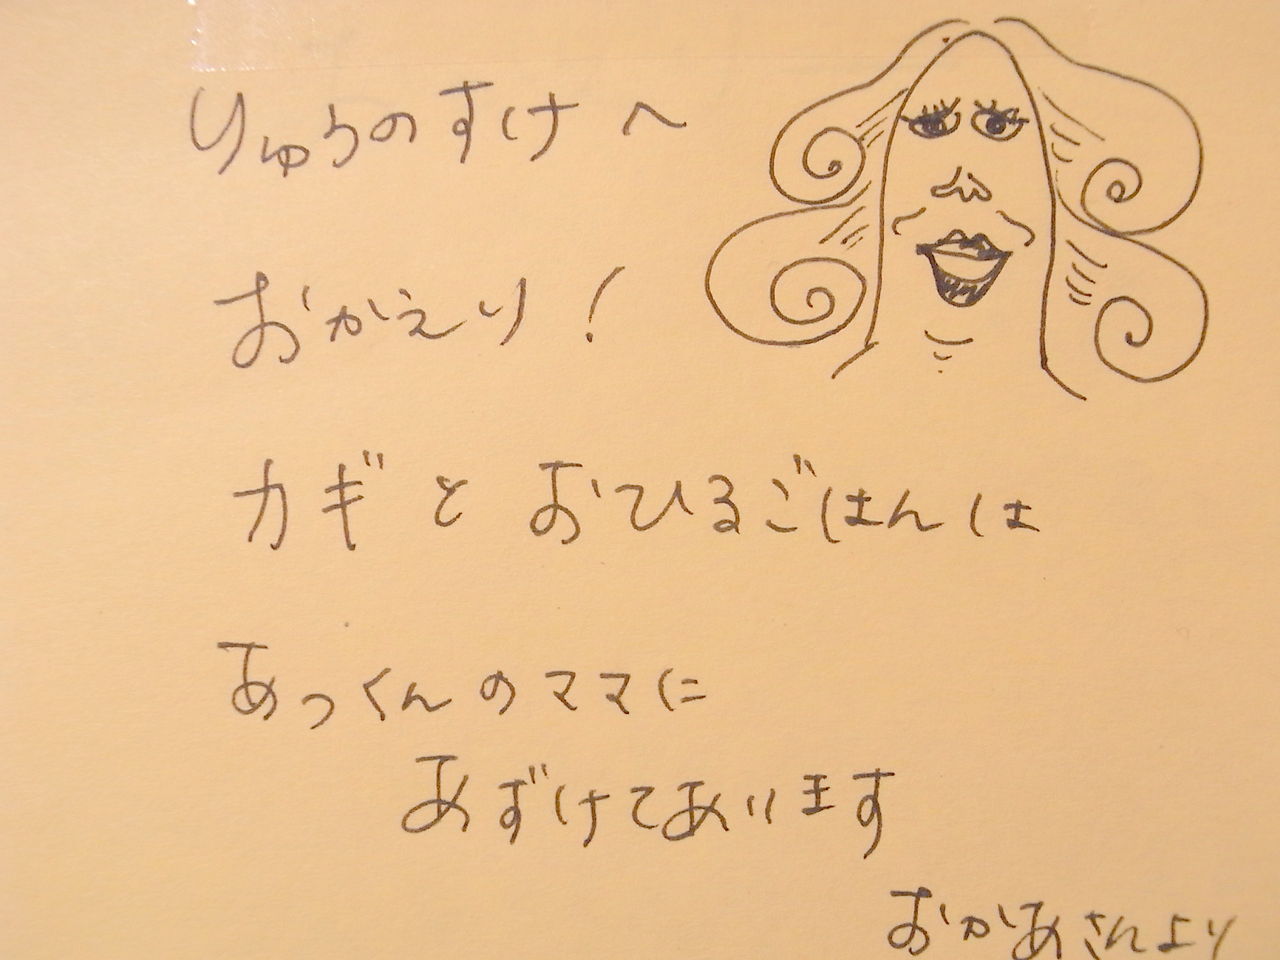 りゅうのすけへ
おかえり！
カギとおひるごはんは
あっくんのママに
あずけてあります
おかあさんより